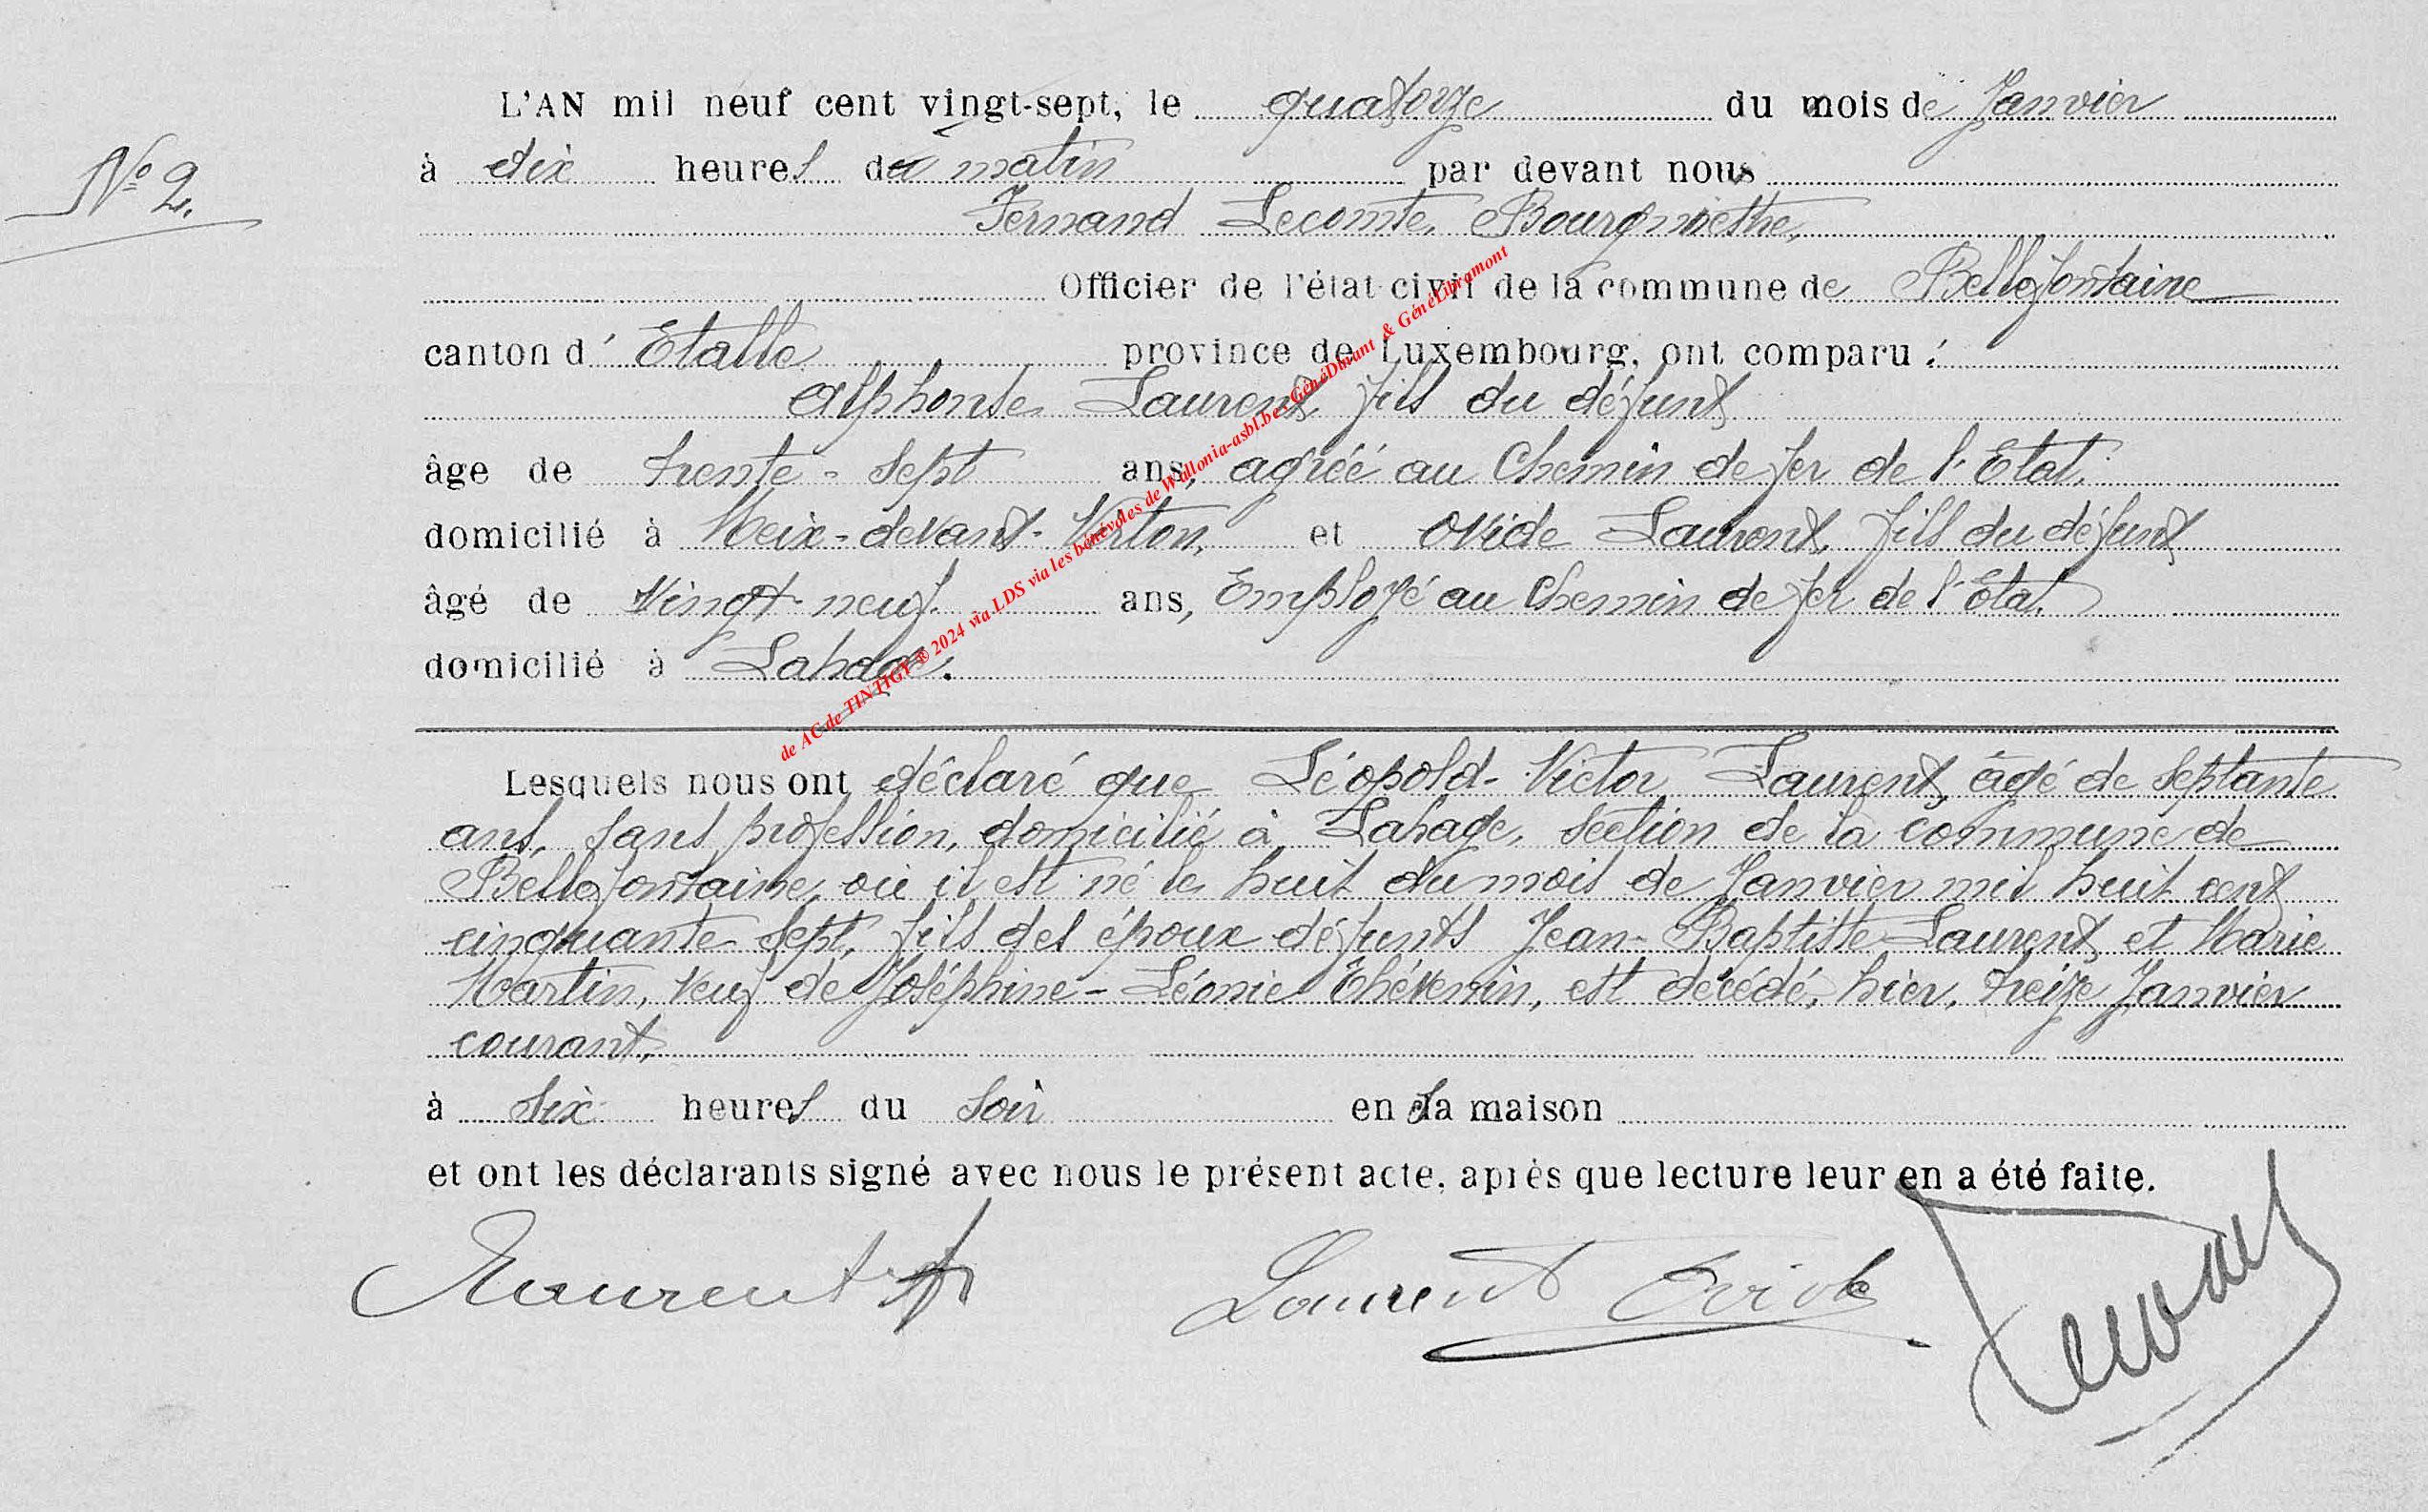 L'AN mil neuf cent vingt-sept, le quatorze du mois de Janvier
N° 2.
à dix heures du matin par devant nous
Fernand Lecomte, Bourgmestre,
Officier de l'état civil de la commune de Bellefontaine
canton d'Etalle province de Luxembourg, ont comparu :
Alphonse Laurent, fils du défunt
âge de trente-sept ans, agréé au Chemin de fer de l'Etat,
domicilié à Meix-devant-Virton, et Ovide Laurent, fils du défunt
âgé de vingt-neuf ans, Employé au Chemin de fer de l'Etat
domicilié à Lahage.
de AC de TINTIGY © 2024 via LDS via les bénévoles de Wallonia-asbl.be - GénéDinant & GénéLibramont
Lesquels nous ont déclaré que Léopold-Victor Laurent, âgé de septante
ans, sans profession, domicilié à Lahage, section de la commune de
Bellefontaine, où il est né le huit du mois de Janvier mil huit cent
cinquante-sept, fils des époux défunts Jean-Baptiste Laurent et Marie
Martin, veuf de Joséphine-Léonie Thévenin, est décédé, hier, treize Janvier
courant,
à six heures du soir en sa maison
et ont les déclarants signé avec nous le présent acte, après que lecture leur en a été faite.
Laurent A Laurent Ovide